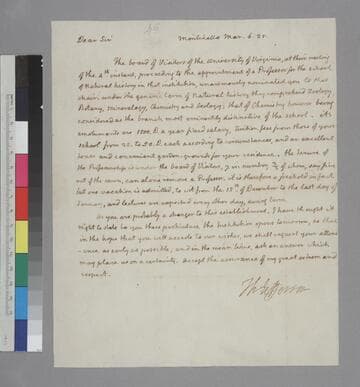 Dear Sir Monticello Mar. 6. 25.
The board of Visitors of the University of Virginia, at their meeting
of the 4th instant, proceeding to the appointment of a Professor for the school
of Natural history in that institution, unanimously nominated you to that
chair. under the generic term of Natural history they comprehend Zoology
Botany, Mineralogy, Chemistry and Geology; that of Chemistry however being
considered as the branch most eminently distinctive of the school. its
emoluments are 1500. D. a year fixed salary, tuition fees from those of your
school from 25. to 50. D. each according to circumstances, and an excellent
house and convenient garden grounds for your residence. the tenure of
the Professorship is under the board of Visitors, 7. in number, 2/3 of whom,
out of the seven, can alone remove a Professor. it is therefore a freehold in fact
but one vacation is admitted, to wit from the 15th of December to the last day of
January, and lectures are expected every other day, 
As you are probably a stranger to this establishment, I have thought it
right to state to you these particulars. the Institution opens tomorrow, so that
in the hope that you will accede to our wishes, we shall request your attend
-ance as early as possible, and in the mean time, ask an answer which
may place us on a certainty. accept the assurance of my great esteem and
respect.
Th: Jefferson